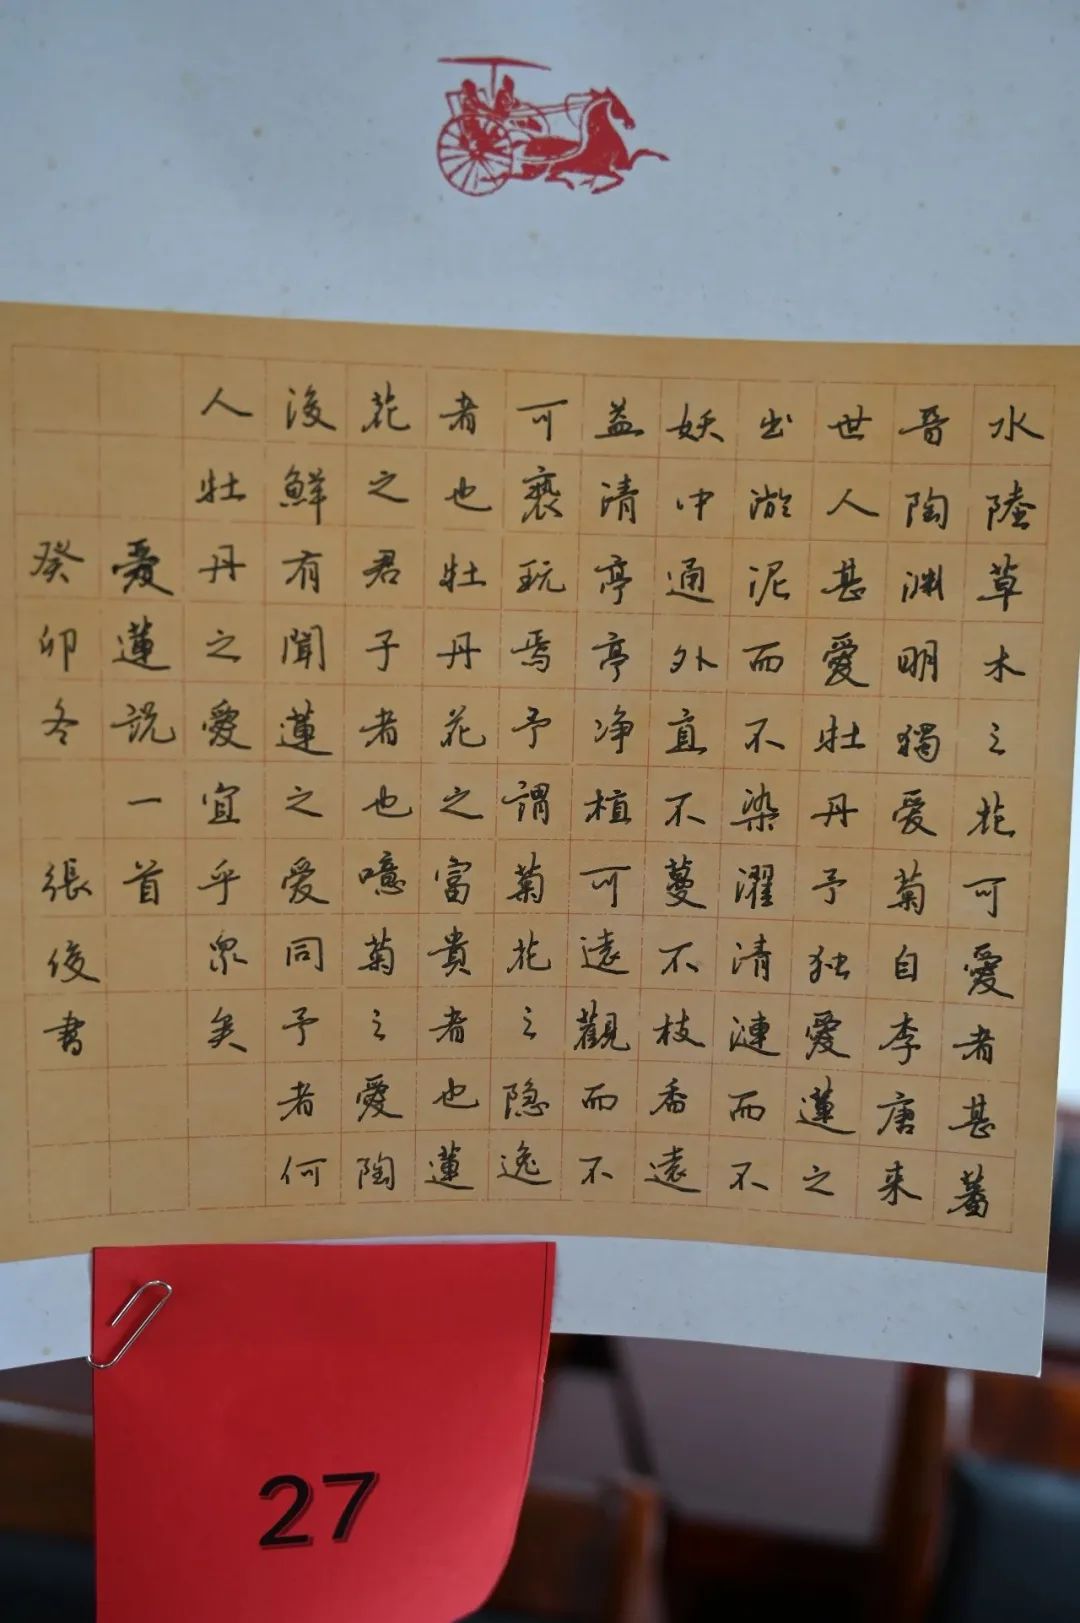 水陸草木之花可愛者甚蕃
晉陶渊明獨爱菊自李唐来
世人甚愛牡丹予独爱蓮之
出淤泥而不染濯清漣而不
妖中通外直不蔓不枝香遠
益清亭亭净植可遠觀而不
可亵玩焉予謂菊花之隐逸
者也牡丹花之富貴者也蓮
花之君子者也噫菊之愛陶
後鮮有聞蓮之爱同予者何
人牡丹之愛宜乎眾矣
愛蓮説一首
癸卯冬 張俊書
27